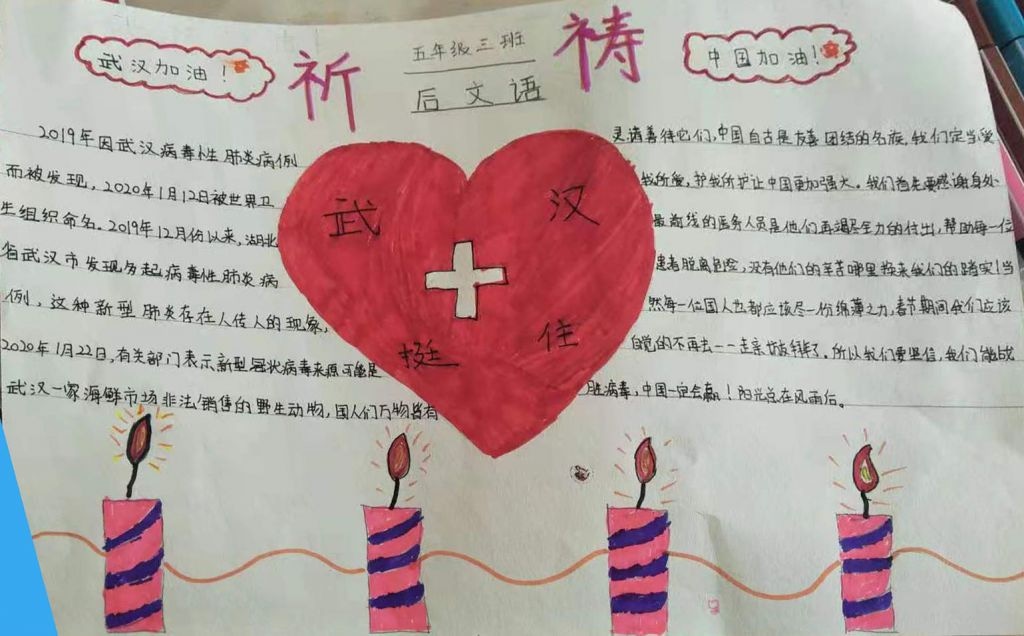 武汉加油！
祈祷
五年级三班
后文语
中国加油！
2019年因武汉病毒性肺炎病例
而被发现，2020年1月12日被世界卫
生组织命名。2019年12月份以来，湖北
省武汉市发现多起病毒性肺炎病
例，这种新型肺炎存在人传人的现象，
2020年1月22日，有关部门表示新型冠状病毒来源可能是
武汉一家海鲜市场非法销售的野生动物，国人们万物皆有
武汉
挺住
灵请善待它们，中国自古是友善团结的名族，我们定当爱
我所爱，护我所护让中国更加强大。我们首先要感谢身处
最前线的医务人员是他们再竭尽全力的付出，帮助每一位
患者脱离危险，没有他们的辛苦哪里换来我们的踏实！当
然每一位国人也都应该尽一份绵薄之力，春节期间我们应该
自觉的不再去一一走亲访友拜年了。所以我们要坚信，我们能战
胜病毒，中国一定会赢！阳光总在风雨后。